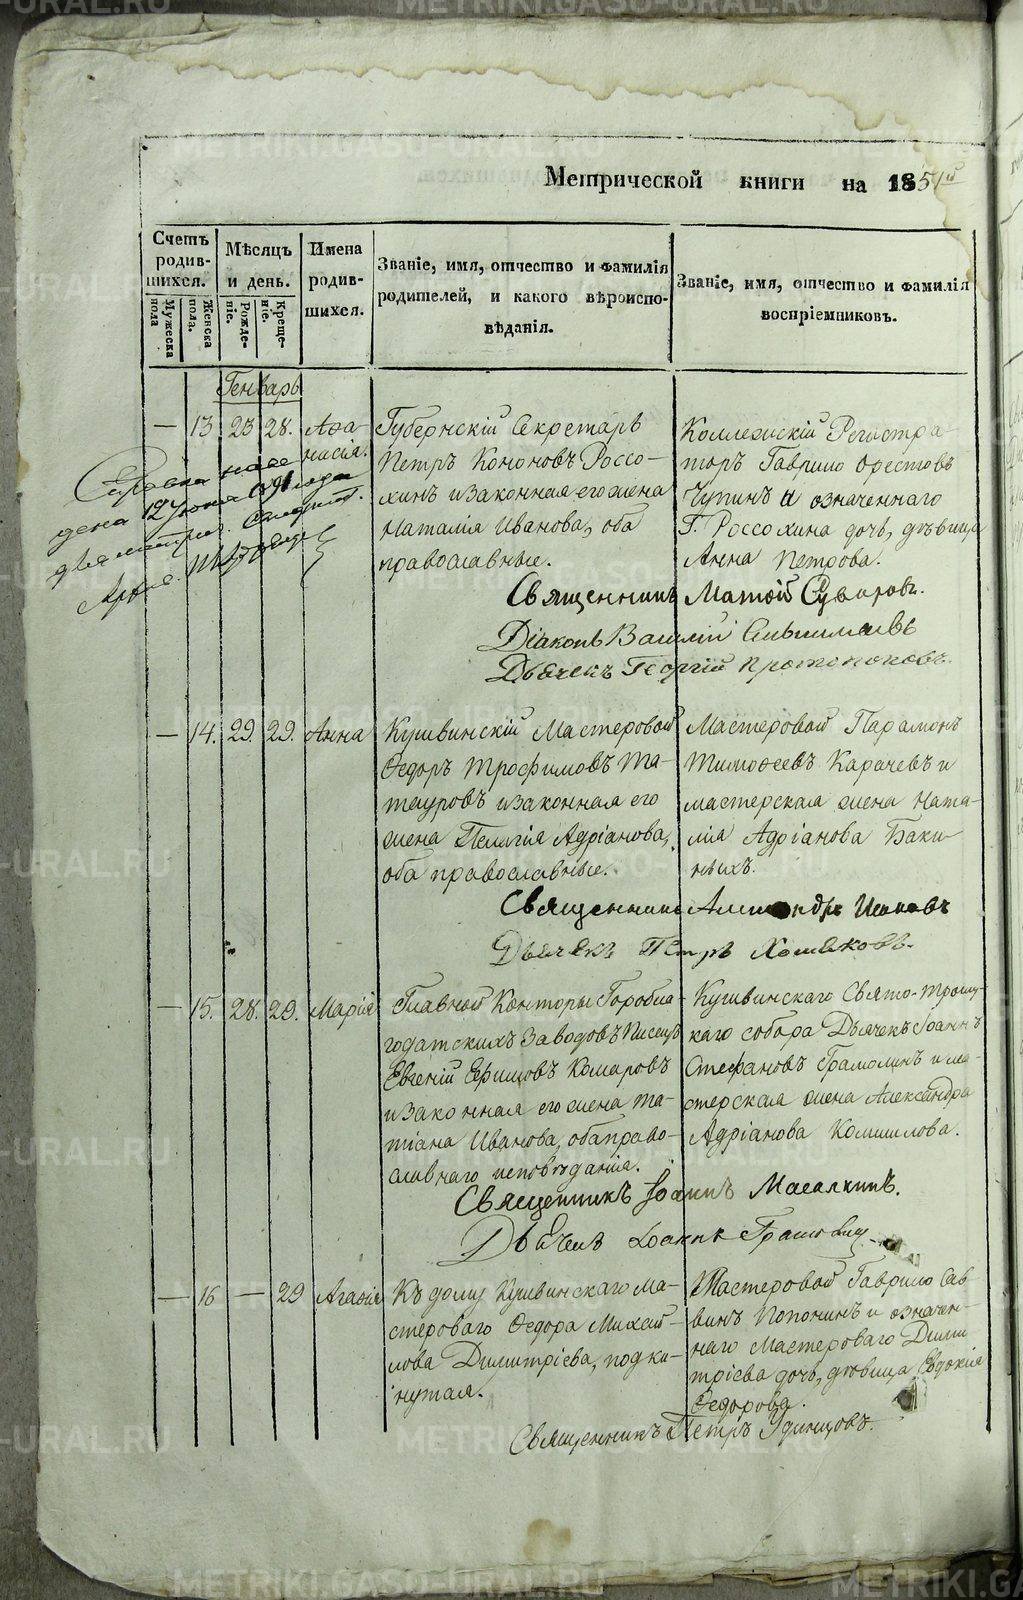 Метрической книги на 1851й
Счетъ родив-шихся.
Мужеска пола
Женска пола.
Мѣсяцъ и день.
Рожде-ніе.
Креще-ніе.
Имена родив-шихся.
Званіе, имя, отчество и фамилія
родителей, и какого вѣроиспо-
вѣданія.
Званіе, имя, отчество и фамилія
воспріемниковъ.
Генварь
— 13. 23 28. Аѳа-
насія.
Губернскій Секретарь
Петръ Кононовъ Россо-
хинъ и законная его жена
Наталія Иванова, оба
православные.
Коллежскій Регистра-
торъ Гаврило Орестовъ
Чупинъ и означеннаго
Г. Россохина дочь, дѣвица
Анна Петрова.
Священникъ
Діаконъ Василій
Дьячекъ Георгій Протопоповъ.
— 14. 29. 29. Анна
Кушвинскій Мастеровой
Ѳедоръ Трофимовъ Та-
тауровъ и законная его
жена Пелагія Адріанова,
оба православные.
Мастеровой Парамонъ
Тимоѳеевъ Карачевъ и
мастерская жена Ната-
лія Адріанова Баки-
ныхъ.
Священникъ Александръ
Дьячекъ Петръ Хомяковъ.
— 15. 28. 29. Марія
Главной Конторы Гороблаг-
годатскихъ Заводовъ Писецъ
Евгеній Комаровъ
и законная его жена Та-
тіана Иванова, оба право-
славнаго исповѣданія.
Кушвинскаго Свято-Троиц-
каго собора Дьячекъ Іоаннъ
Стефановъ Грамолинъ и ма-
стерская жена Александра
Адріанова
Священникъ Іоаннъ Масалкинъ.
Дьячекъ Іоаннъ
— 16 — 29 Агаѳія
Къ дому Кушвинскаго Ма-
стероваго Ѳедора Михай-
лова Димитріева, подки-
нутая.
Мастеровой Гаврило Сав-
винъ Попонинъ и означен-
наго Мастероваго Дими-
тріева дочь, дѣвица Евдокія
Ѳедорова.
Священникъ Петръ Удинцовъ.
METRIKI.GASO-URAL.RU